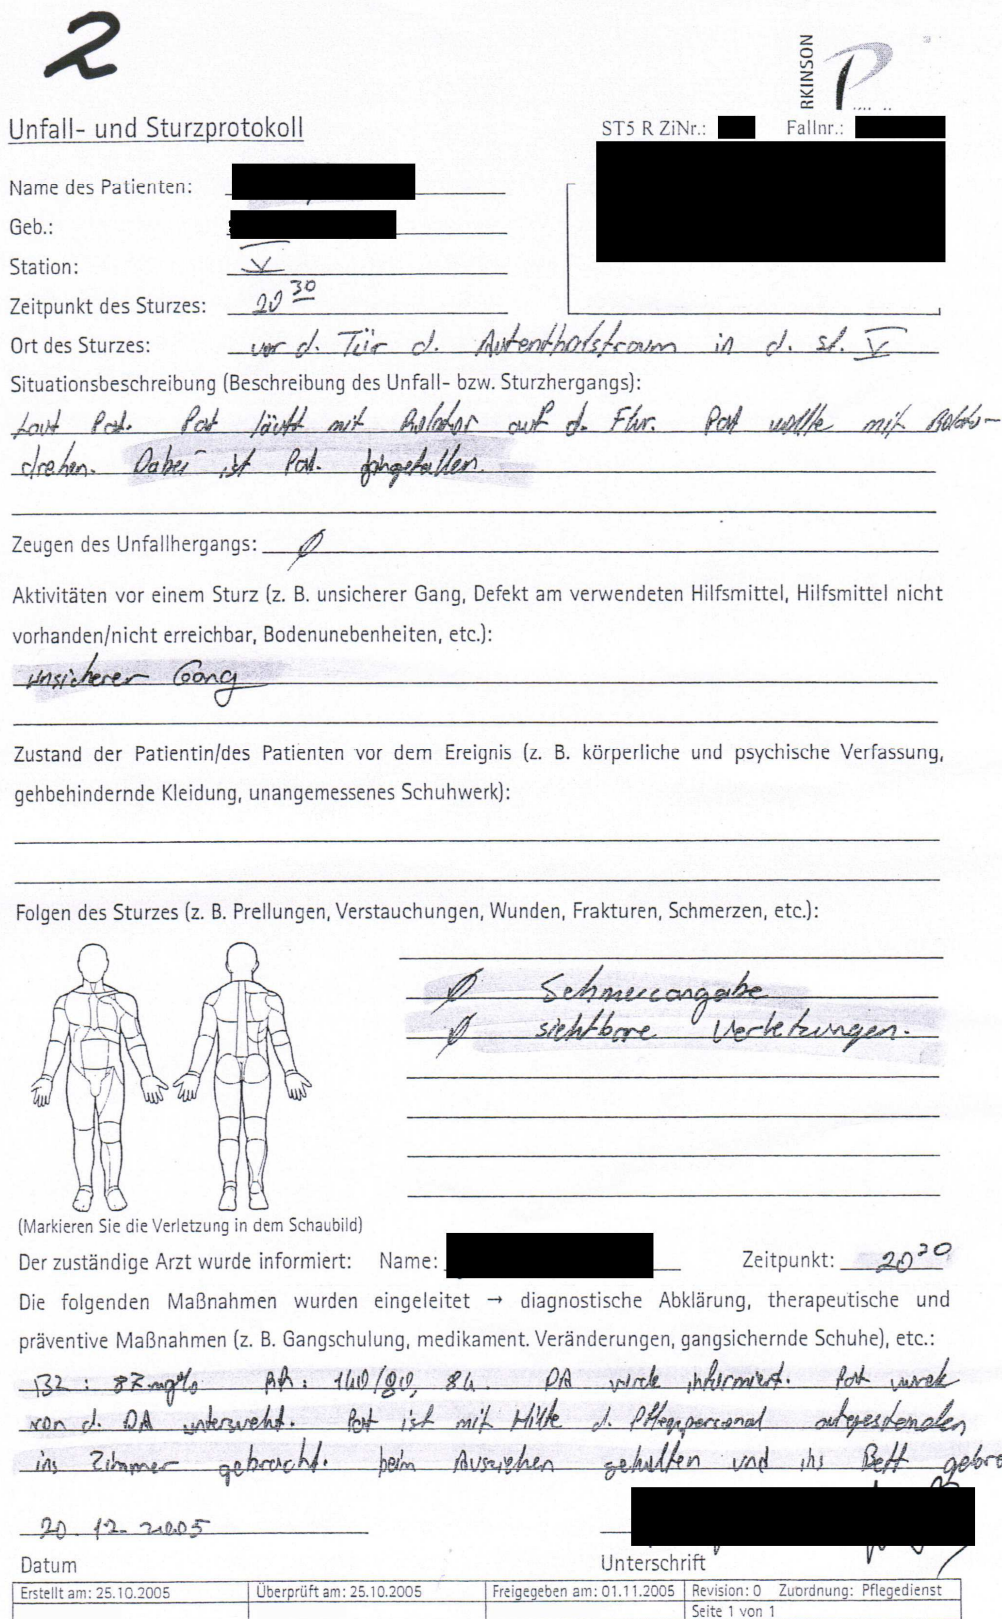 2
RKINSON
Unfall- und Sturzprotokoll
ST5 R ZiNr.: Fallnr.:
Name des Patienten:
Geb.:
Station: V
Zeitpunkt des Sturzes: 20 30
Ort des Sturzes: vor d. Tür d. in d. st. V
Situationsbeschreibung (Beschreibung des Unfall- bzw. Sturzhergangs):
Laut Pat. Pat läuft mit Rolator auf d. Flur. Pat wollte mit Rolator
drehen. Dabei ist Pat. hingefallen.
Zeugen des Unfallhergangs: ∅
Aktivitäten vor einem Sturz (z. B. unsicherer Gang, Defekt am verwendeten Hilfsmittel, Hilfsmittel nicht
vorhanden/nicht erreichbar, Bodenunebenheiten, etc.):
unsicherer Gang
Zustand der Patientin/des Patienten vor dem Ereignis (z. B. körperliche und psychische Verfassung,
gehbehindernde Kleidung, unangemessenes Schuhwerk):
Folgen des Sturzes (z. B. Prellungen, Verstauchungen, Wunden, Frakturen, Schmerzen, etc.):
∅ Schmerzangabe
∅ sichtbare Verletzungen.
(Markieren Sie die Verletzung in dem Schaubild)
Der zuständige Arzt wurde informiert: Name: Zeitpunkt:
Die folgenden Maßnahmen wurden eingeleitet → diagnostische Abklärung, therapeutische und
präventive Maßnahmen (z. B. Gangschulung, medikament. Veränderungen, gangsichernde Schuhe), etc.:
BZ: 87 mg% RR: 140/80, 84. DA wurde informiert. Pat wurde
von d. DA untersucht. Pat ist mit Hilfe d. Pflegepersonal aufgestanden
ins Zimmer gebracht. beim Ausziehen geholfen und ins Bett gebra
20.12.2005
Datum Unterschrift
Erstellt am: 25.10.2005 Überprüft am: 25.10.2005 Freigegeben am: 01.11.2005 Revision: 0 Zuordnung: Pflegedienst
Seite 1 von 1